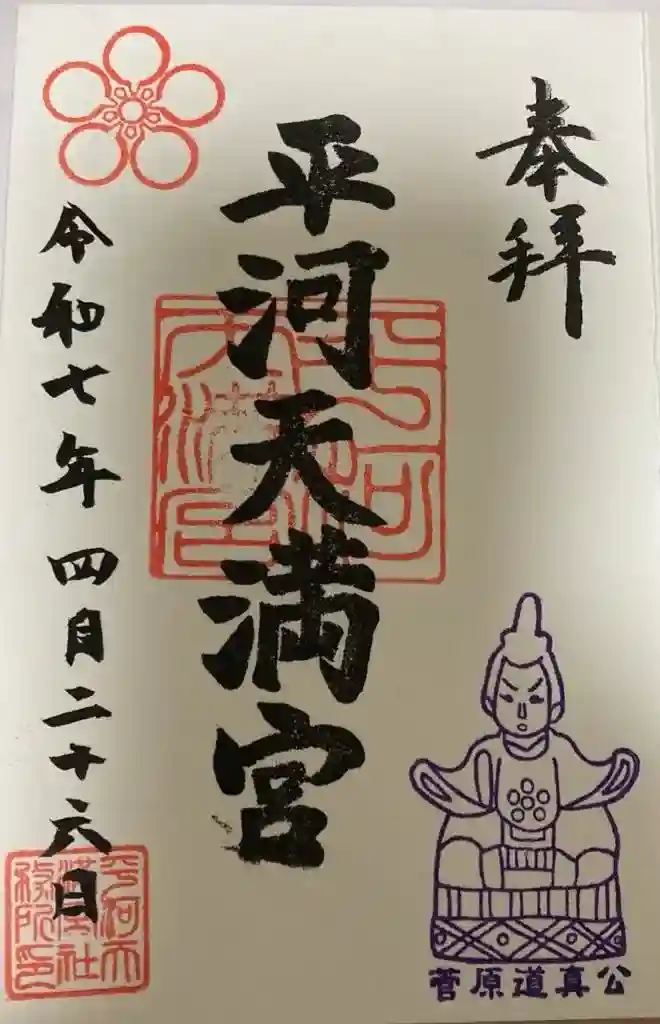 奉拝
平河天満宮
令和七年四月二十六日
菅原道真公
平河天
満宮社
務所印